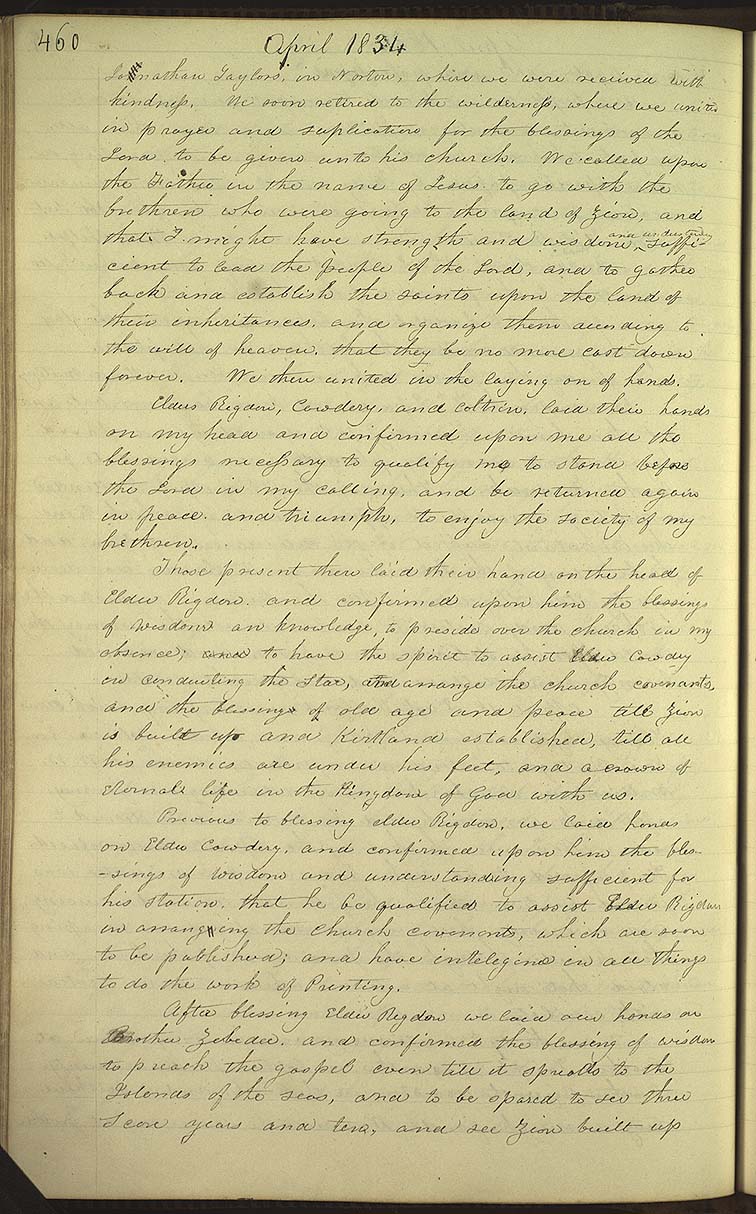 460 April 1834
Jonathan Taylors, in Norton, where we were received with
kindness. We soon retired to the wilderness, where we united
in prayer and suplication for the blessings of the
Lord to be given unto his church. We called upon
the Father in the name of Jesus to go with the
brethren who were going to the land of Zion, and
that I might have strength and wisdom, and understanding suffi-
cient to lead the people of the Lord, and to gather
back and establish the saints upon the land of
their inheritances, and organize them according to
the will of heaven, that they be no more cast down
forever. We then united in the laying on of hands.
Elders Rigdon, Cowdery, and Coltrin, laid their hands
on my head and confirmed upon me all the
blessings necessary to qualify me to stand before
the Lord in my calling, and be returned again
in peace and triumph, to enjoy the society of my
brethren.
Those present then laid their hand on the head of
Elder Rigdon, and confirmed upon him the blessings
of wisdom an knowledge, to preside over the church in my
absence; and to have the spirit to assist Elder Cowdery
in conducting the Star, and arrange the church covenants,
and the blessings of old age and peace till Zion
is built up and Kirtland established, till all
his enemies are under his feet, and a crown of
eternal life in the Kingdom of God with us.
Previous to blessing elder Rigdon, we laid hands
on Elder Cowdery, and confirmed upon him the bles-
-sings of wisdom and understanding sufficient for
his station, that he be qualified to assist Elder Rigdon
in arranging the church covenants, which are soon
to be published; and have inteligence in all things
to do the work of Printing.
After blessing Elder Rigdon we laid our hands on
Brother Zebedee, and confirmed the blessing of wisdom
to preach the gospel even till it spreads to the
Islands of the seas, and to be spared to see three
score years and ten, and see Zion built up